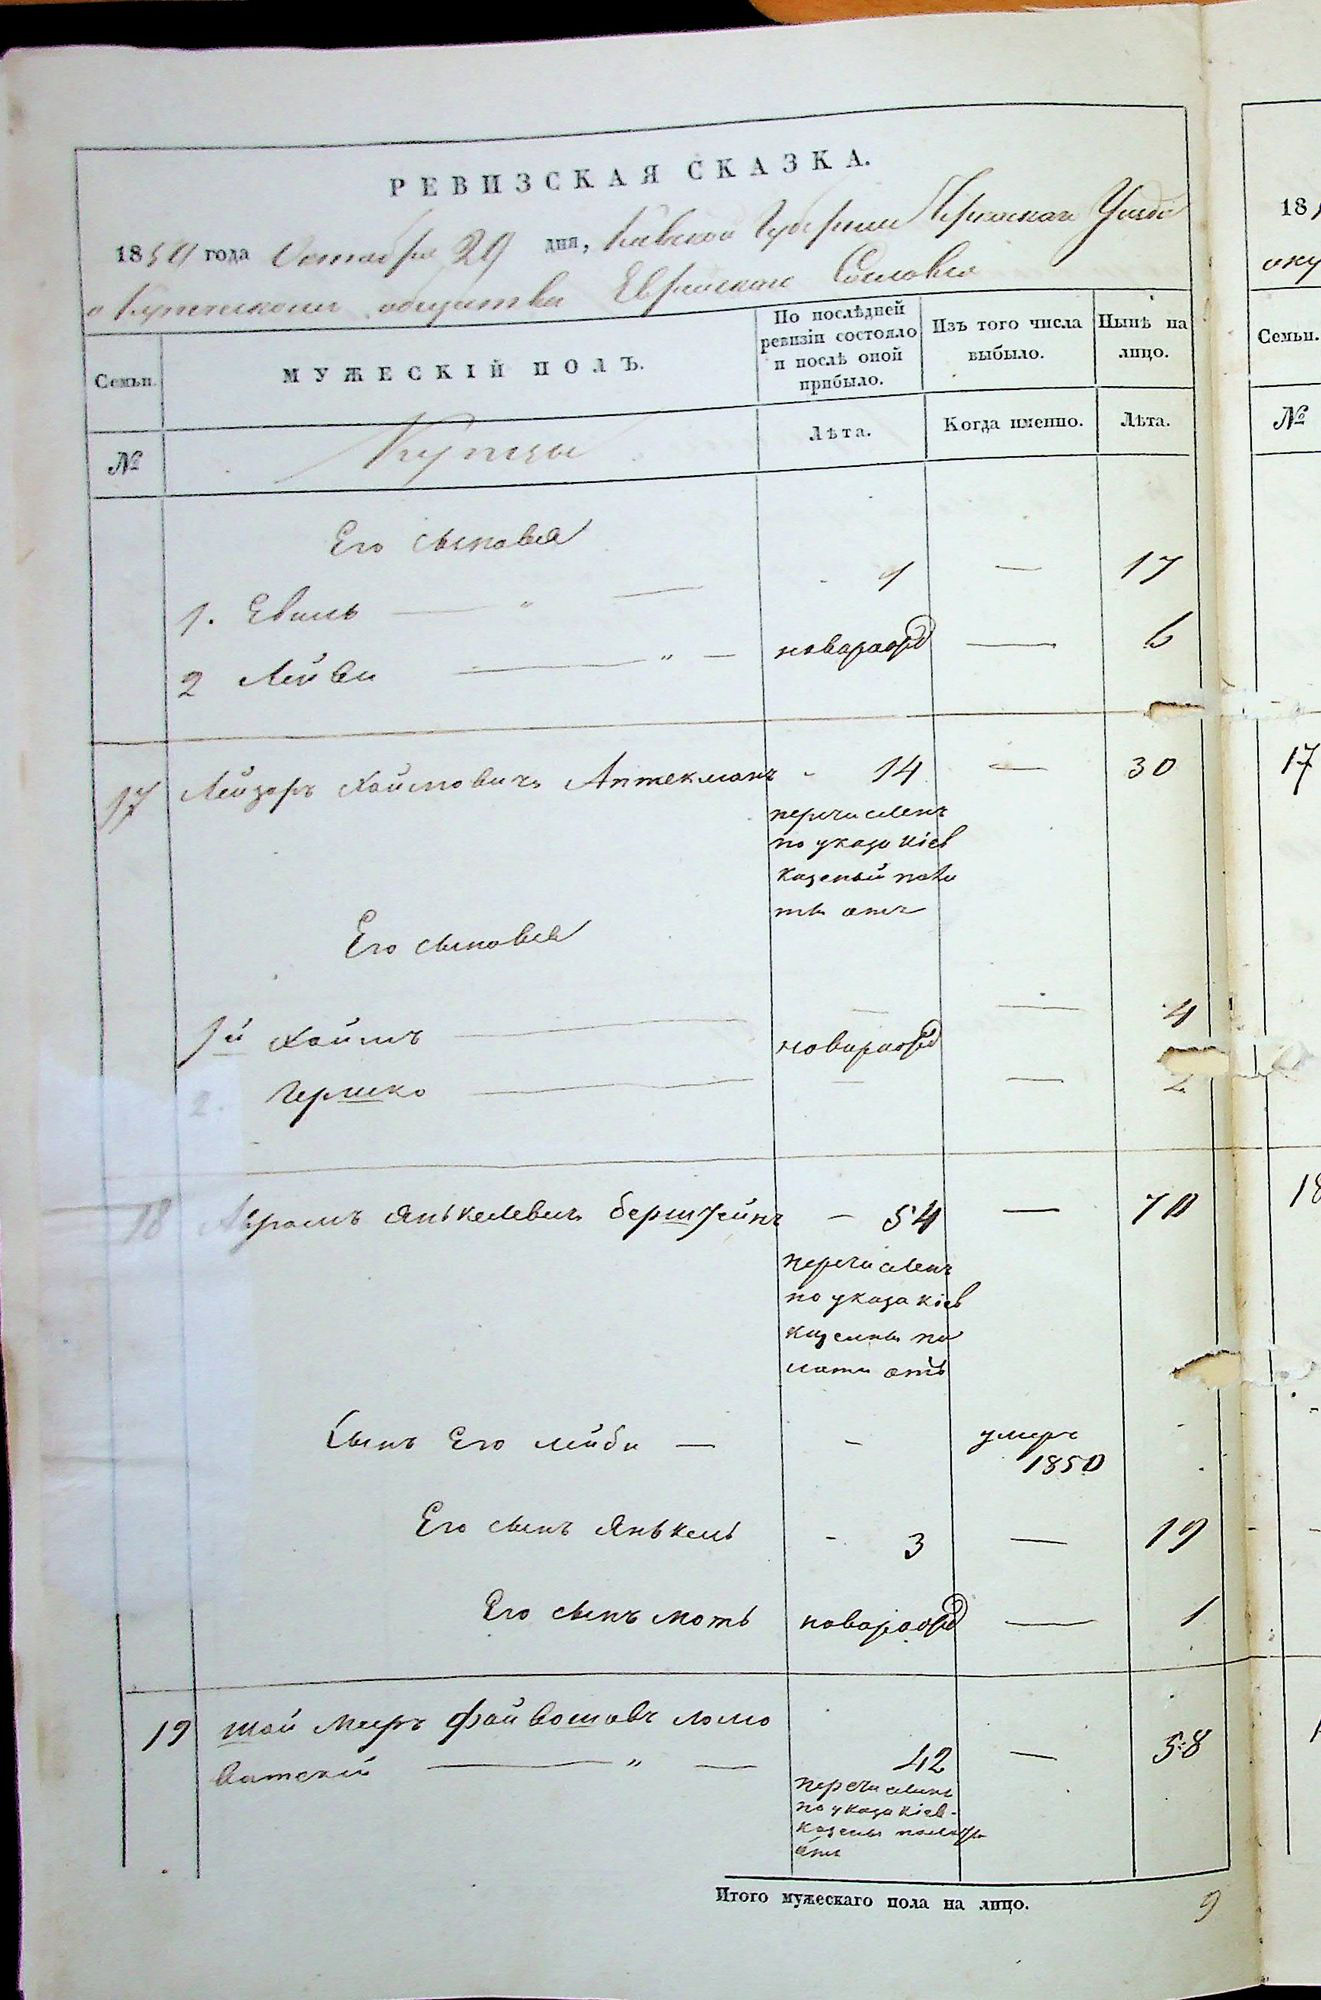 РЕВИЗСКАЯ СКАЗКА.
1850 года Октября 29 дня, Киевской Губернии Уезда
о Купеческом обществе Еврейского Сословия
Семьи.
МУЖЕСКІЙ ПОЛЪ.
По послѣдней ревизіи состояло и послѣ оной прибыло.
Изъ того числа выбыло.
Нынѣ на лицо.
№
Купцы
Лѣта.
Когда именно.
Лѣта.
Его сыновья
1. — " — 1 — 17
2 Лейби — " — новорожд — 6
17 Лейзоръ Хаимовичъ Аптекманъ - 14 — 30
перечисленъ
по указу Кіев
казеный пала
ты
Его сыновья
1й Хаимъ — — — 4
новорожд
2. Гершко — — — 2
18 Абрамъ Янькелевичъ Берштейнъ - 54 — 70
перечисленъ
по указу Кіев
казенны па
латы
Сынъ Его Лейби — - умеръ
1850
Его сынъ Янькель - 3 — 19
Его сынъ Моть новорожд — 1
19 Шой Меръ Файвошовъ Ломо
ватский — " — 42 — 58
перечисленъ
по указу Кіев-
казены палаты
Итого мужескаго пола на лицо. 9
18
Семьи.
№
17
18